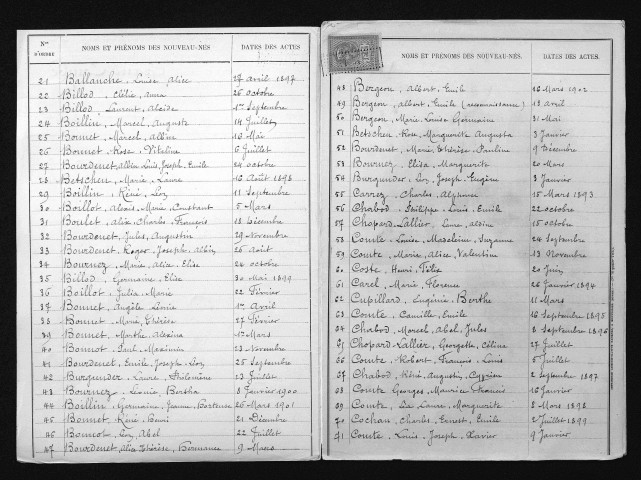 Nos D'ORDRE NOMS ET PRÉNOMS DES NOUVEAU-NÉS DATES DES ACTES
21 Ballanche, Louise Alice 27 avril 1897
22 Billod, Clélie, Anna 26 octobre
23 Billod, Laurent, Alcide 1er Septembre
24 Boillin, Marcel, Auguste 14 Juillet
25 Bonnet, Marcel, Albin 16 Mai
26 Bonnet, Rose, Vitaline 6 Juillet
27 Bourdenet, Albin Louis Joseph, Emile 24 octobre
28 Betschen, Marie, Laure 16 Août 1898
29 Boillin, Réné, Léon 11 Septembre
30 Boillot, Alexis, Marie, Constant 5 Mars
31 Boulet, Alix, Charles, François 18 Décembre
32 Bourdenet, Jules, Augustin 29 Novembre
33 Bourdenet, Roger, Joseph, Albin 26 Août
34 Bournez, Marie, Alix, Elise 24 octobre
35 Billod, Germaine, Elise 30 Mai 1899
36 Boillot, Julia, Marie 22 Février
37 Bonnet, Angèle, Lénie 1er Avril
38 Bonnet, Marie, Thérèse 27 Février
39 Bonnet, Marthe, Alexina 1er Mars
40 Bonnot, Paul, Maximin 23 Novembre
41 Bourdenet, Emile, Joseph, Léon 25 Septembre
42 Burgunder, Laure, Philomène 13 Juillet
43 Bournez, Léonie, Berthe 8 Janvier 1900
44 Boillin, Germaine, Jeanne, Hortense 26 Mars 1901
45 Bonnet, Réné, Henri 21 Décembre
46 Bonnot, Léon, Abel 22 Juillet
47 Bourdenet, Alice, Thérèse, Hermance 9 Mars
NOMS ET PRÉNOMS DES NOUVEAU-NÉS. DATES DES ACTES.
48 Bergeon, Albert, Emile 16 Mars 1902
49 Bergeon, Albert, Emile (reconnaissance) 18 avril
50 Bergeon, Marie, Louise Germaine 31 Mai
51 Betschen, Rose, Marguerite Augusta 3 Janvier
52 Bourdenet, Marie, Thérèse, Pauline 9 Décembre
53 Bournez, Elisa, Marguerite 20 Mars
54 Burgunder, Léon, Joseph, Eugène 3 Janvier
55 Carrez, Charles, Alphonse 15 Mars 1893
56 Chabod, Philippe, Louis, Emile 22 octobre
57 Chopard Lallier, Anna, Aldine 15 octobre
58 Comte, Louise, Madeleine, Suzanne 24 Septembre
59 Comte, Marie, Alice, Valentine 13 Novembre
60 Coste, Henri, Félix 20 Juin
61 Carel, Marie, Florence 26 Janvier 1894
62 Cupillard, Eugénie, Berthe 11 Mars
63 Comte, Camille, Emile 16 Septembre 1895
64 Chabod, Marcel, Abel, Jules 8 Septembre 1896
65 Chopard Lallier, Georgette, Céline 27 Juillet
66 Comte, Robert, François, Louis 5 Juillet
67 Chabod, Réné, Augustin, Cyprien 2 Septembre 1897
68 Comte Georges, Maurice, Francis 16 Janvier
69 Comte, Léa, Laure, Marguerite 8 Mars 1898
70 Cochon, Charles, Ernest, Emile 2 Juillet 1899
71 Comte, Louis, Joseph, Xavier 9 Janvier